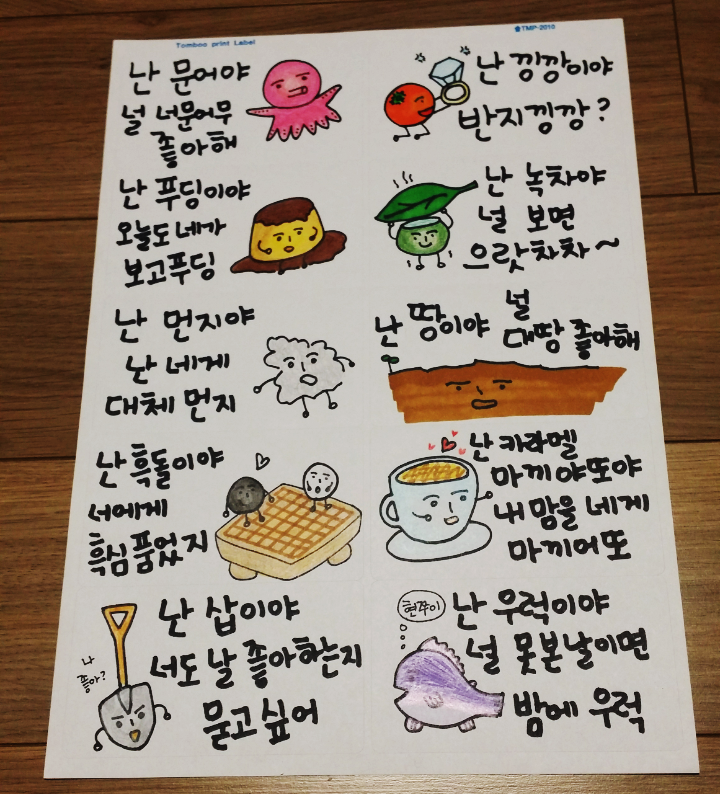 Tombow print Label
TMP-2010
난 문어야
널 너문어무
좋아해
난 낑깡이야
반지낑깡?
난 푸딩이야
오늘도 네가
보고푸딩
난 녹차야
널 보면
으랏차차~
난 먼지야
난 네게
대체 먼지
난 땅이야
널
대땅 좋아해
난 흑돌이야
서에게
흑심품었지
난 카라멜
마끼야또야
내 맘을 네게
마끼어또
난 삽이야
너도 날 좋아하는지
묻고싶어
나
좋아?
현쭈이
난 우럭이야
널 못본날이면
밤에 우럭